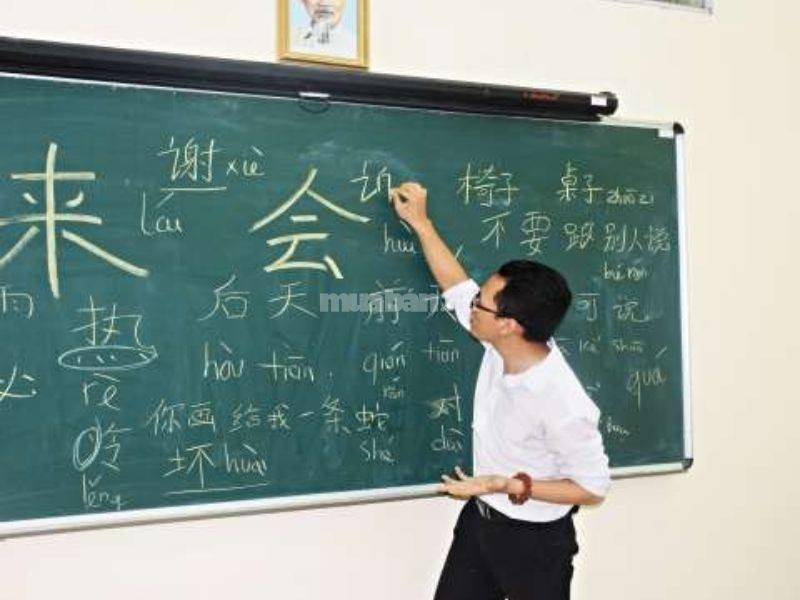 来 谢 xiè 会 椅子 桌子 zhuōzi
lái huì 不要跟别人说
bié rén
雨 热 后天 前 可说
hòu tiān. qián tiān
rè
你画给我一条蛇 对
冷 坏 huài shé duì
lěng